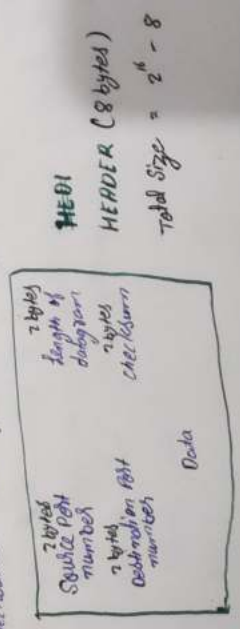 2 bytes
Source Port
number
2 bytes
Length of
datagram
2 bytes
Destination Port
number
2 bytes
checksum
Data
HEADER (8 bytes)
Total Size = 2^16 - 8